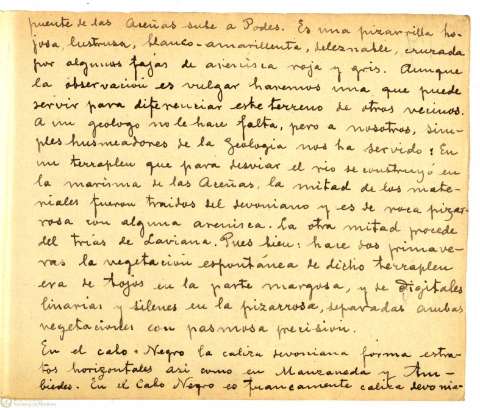 puente de las Aceñas sube a Podes. Es una pizarrilla ho-
josa, lustrosa, blanco-amarillenta, deleznable, cruzada
por algunas fajas de arenisca roja y gris. Aunque
la observación es vulgar haremos una que puede
servir para diferenciar este terreno de otros vecinos.
A un geólogo no le hace falta, pero a nosotros, sim-
ples husmeadores de la Geología nos ha servido: En
un terraplen que para desviar el rio se construyó en
la marisma de las Aceñas, la mitad de los mate-
riales fueron traidos del devoniano y es de roca pizar-
rosa con alguna arenisca. La otra mitad procede
del trías de Laviana. Pues bien: hace dos primave-
ras la vegetación espontánea de dicho terraplen
era de tojos en la parte margosa, y de digitales
linarias y silenes en la pizarrosa, separadas ambas
vegetaciones con pasmosa precisión.
En el cabo Negro la caliza devoniana forma estra-
tos horizontales asi como en Manzaneda y Am-
biedes. En el Cabo Negro es francamente caliza devonia-